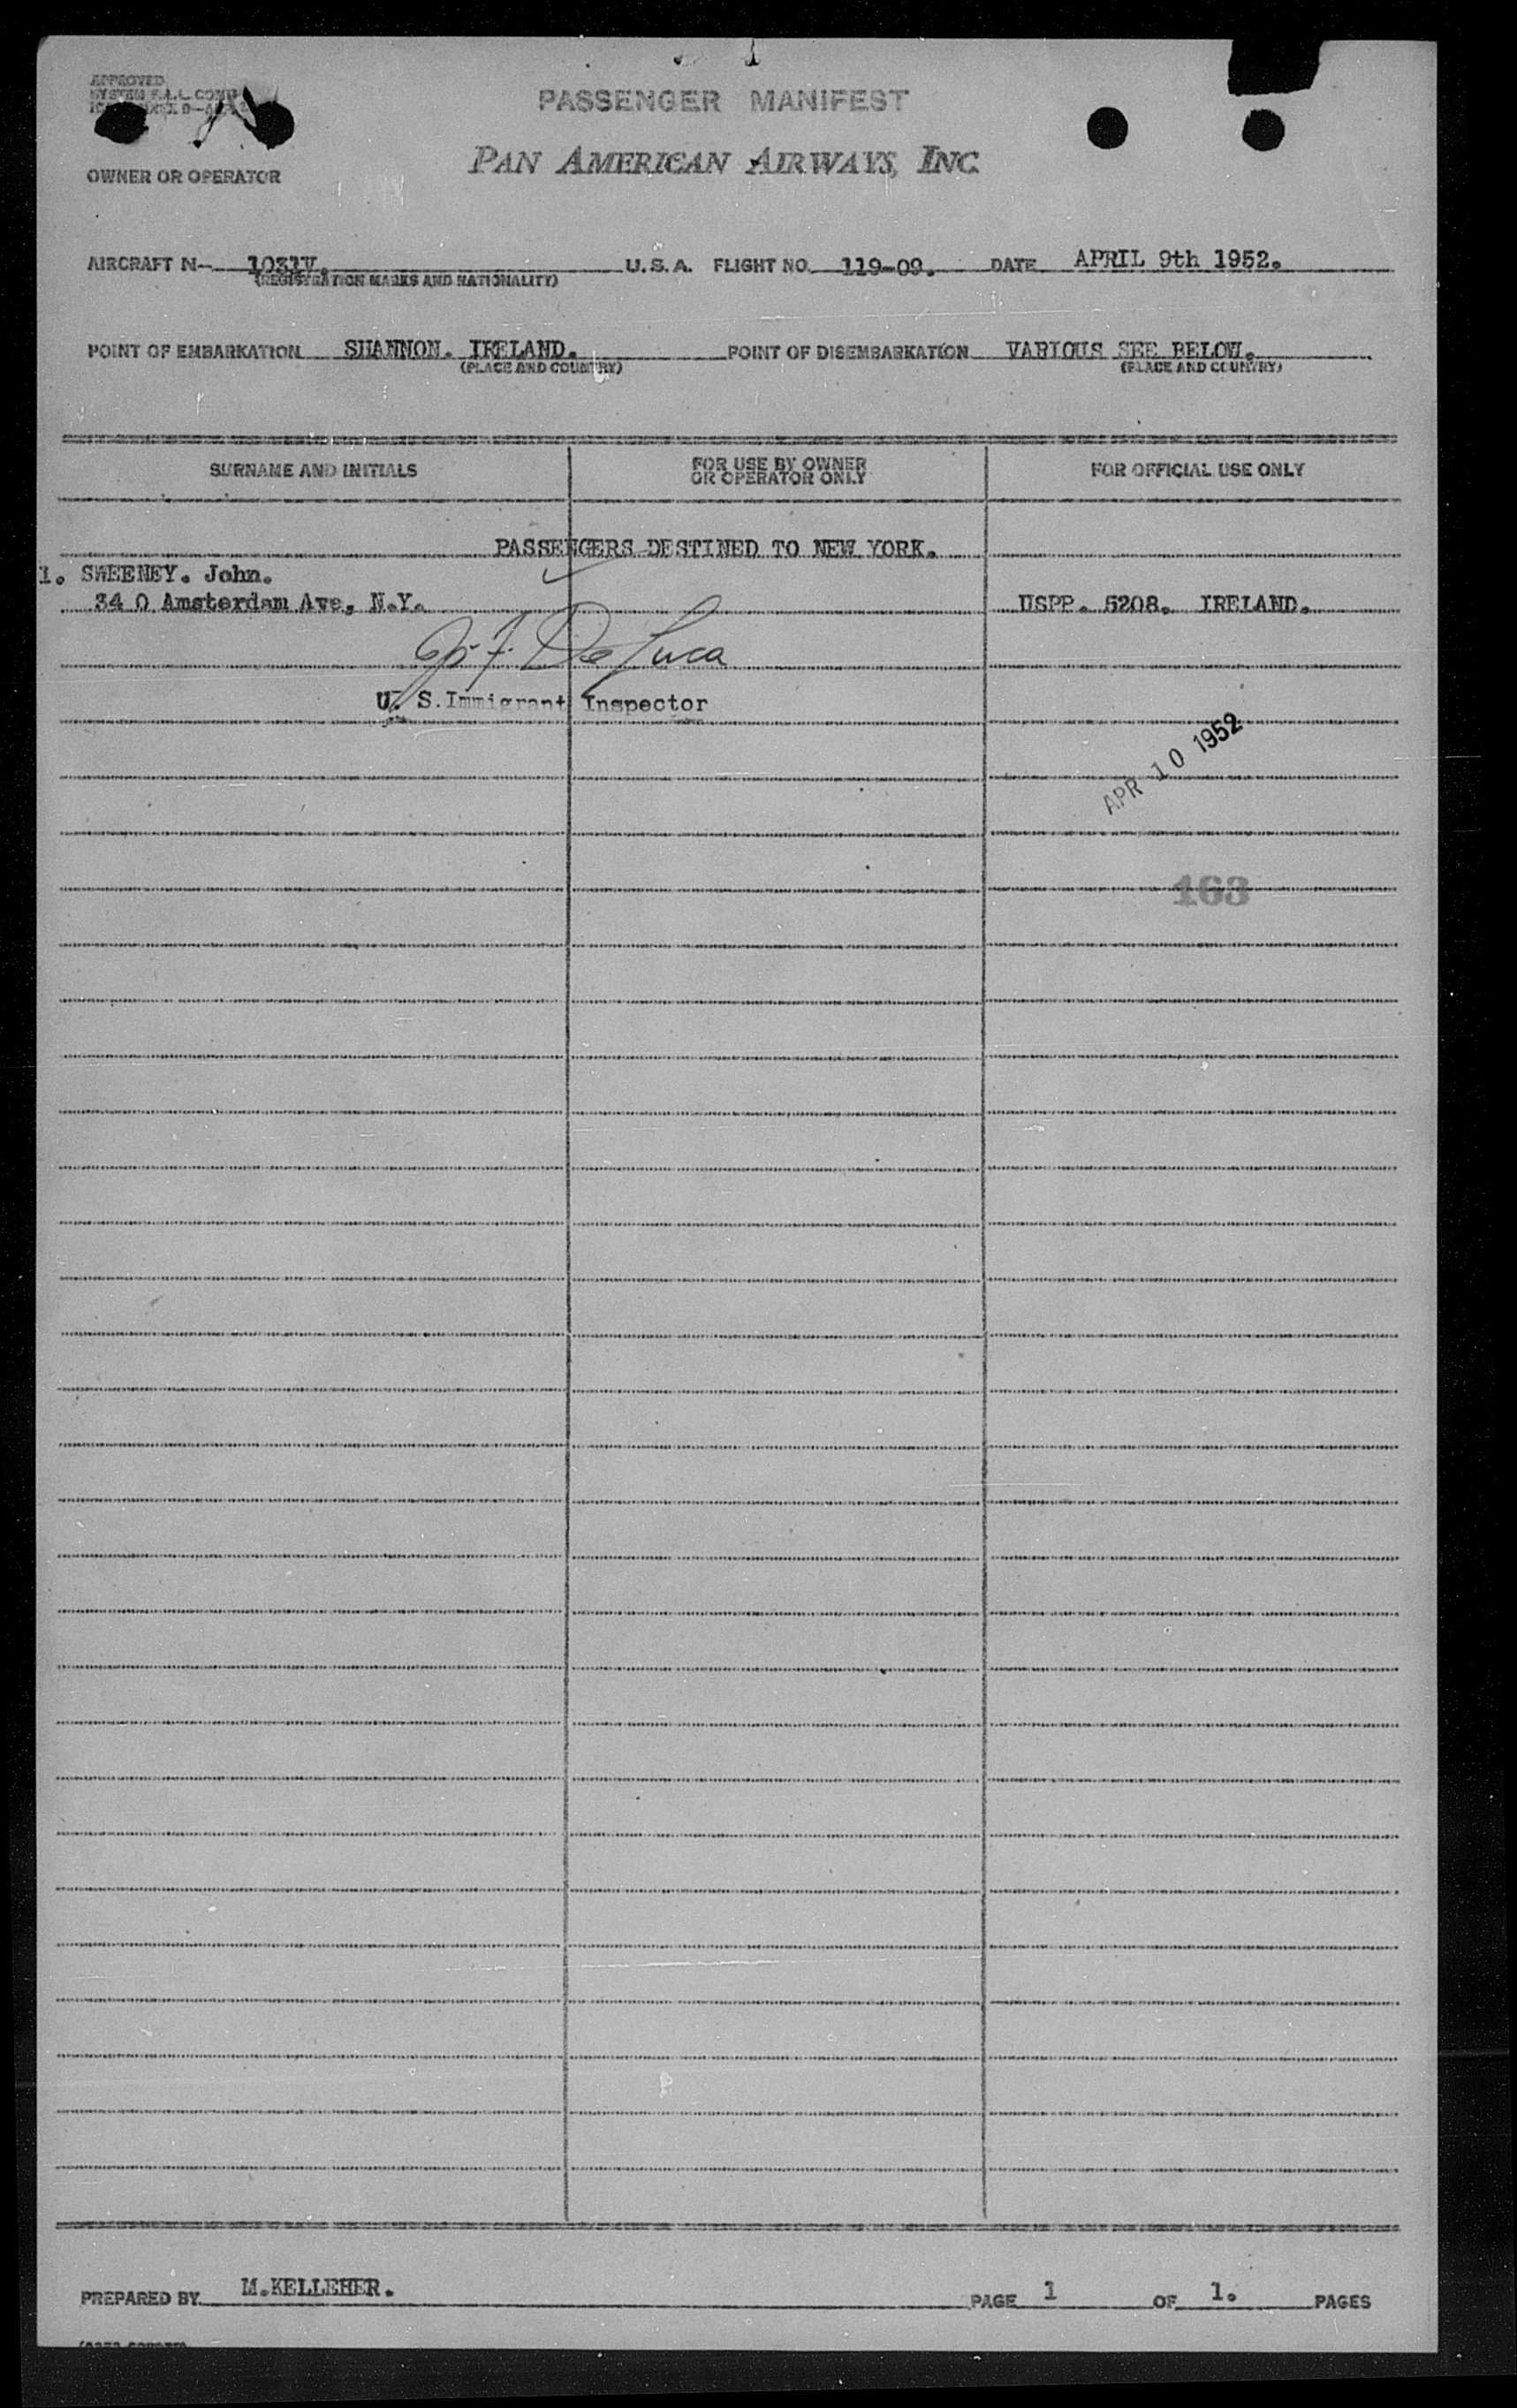 APPROVED
PASSENGER MANIFEST
PAN AMERICAN AIRWAYS, INC.
OWNER OR OPERATOR
AIRCRAFT N- 1031V. U.S.A. FLIGHT NO. 119-09. DATE APRIL 9th 1952.
(REGISTRATION MARKS AND NATIONALITY)
POINT OF EMBARKATION SHANNON. IRELAND. POINT OF DISEMBARKATION VARIOUS SEE BELOW.
(PLACE AND COUNTRY) (PLACE AND COUNTRY)
SURNAME AND INITIALS FOR USE BY OWNER OR OPERATOR ONLY FOR OFFICIAL USE ONLY
PASSENGERS DESTINED TO NEW YORK.
1. SWEENEY. John.
34 0 Amsterdam Ave, N.Y. USPP. 5208. IRELAND.
De Luca
U. S. Immigrant Inspector
APR 10 1952
163
PREPARED BY M.KELLEHER. PAGE 1 OF 1. PAGES